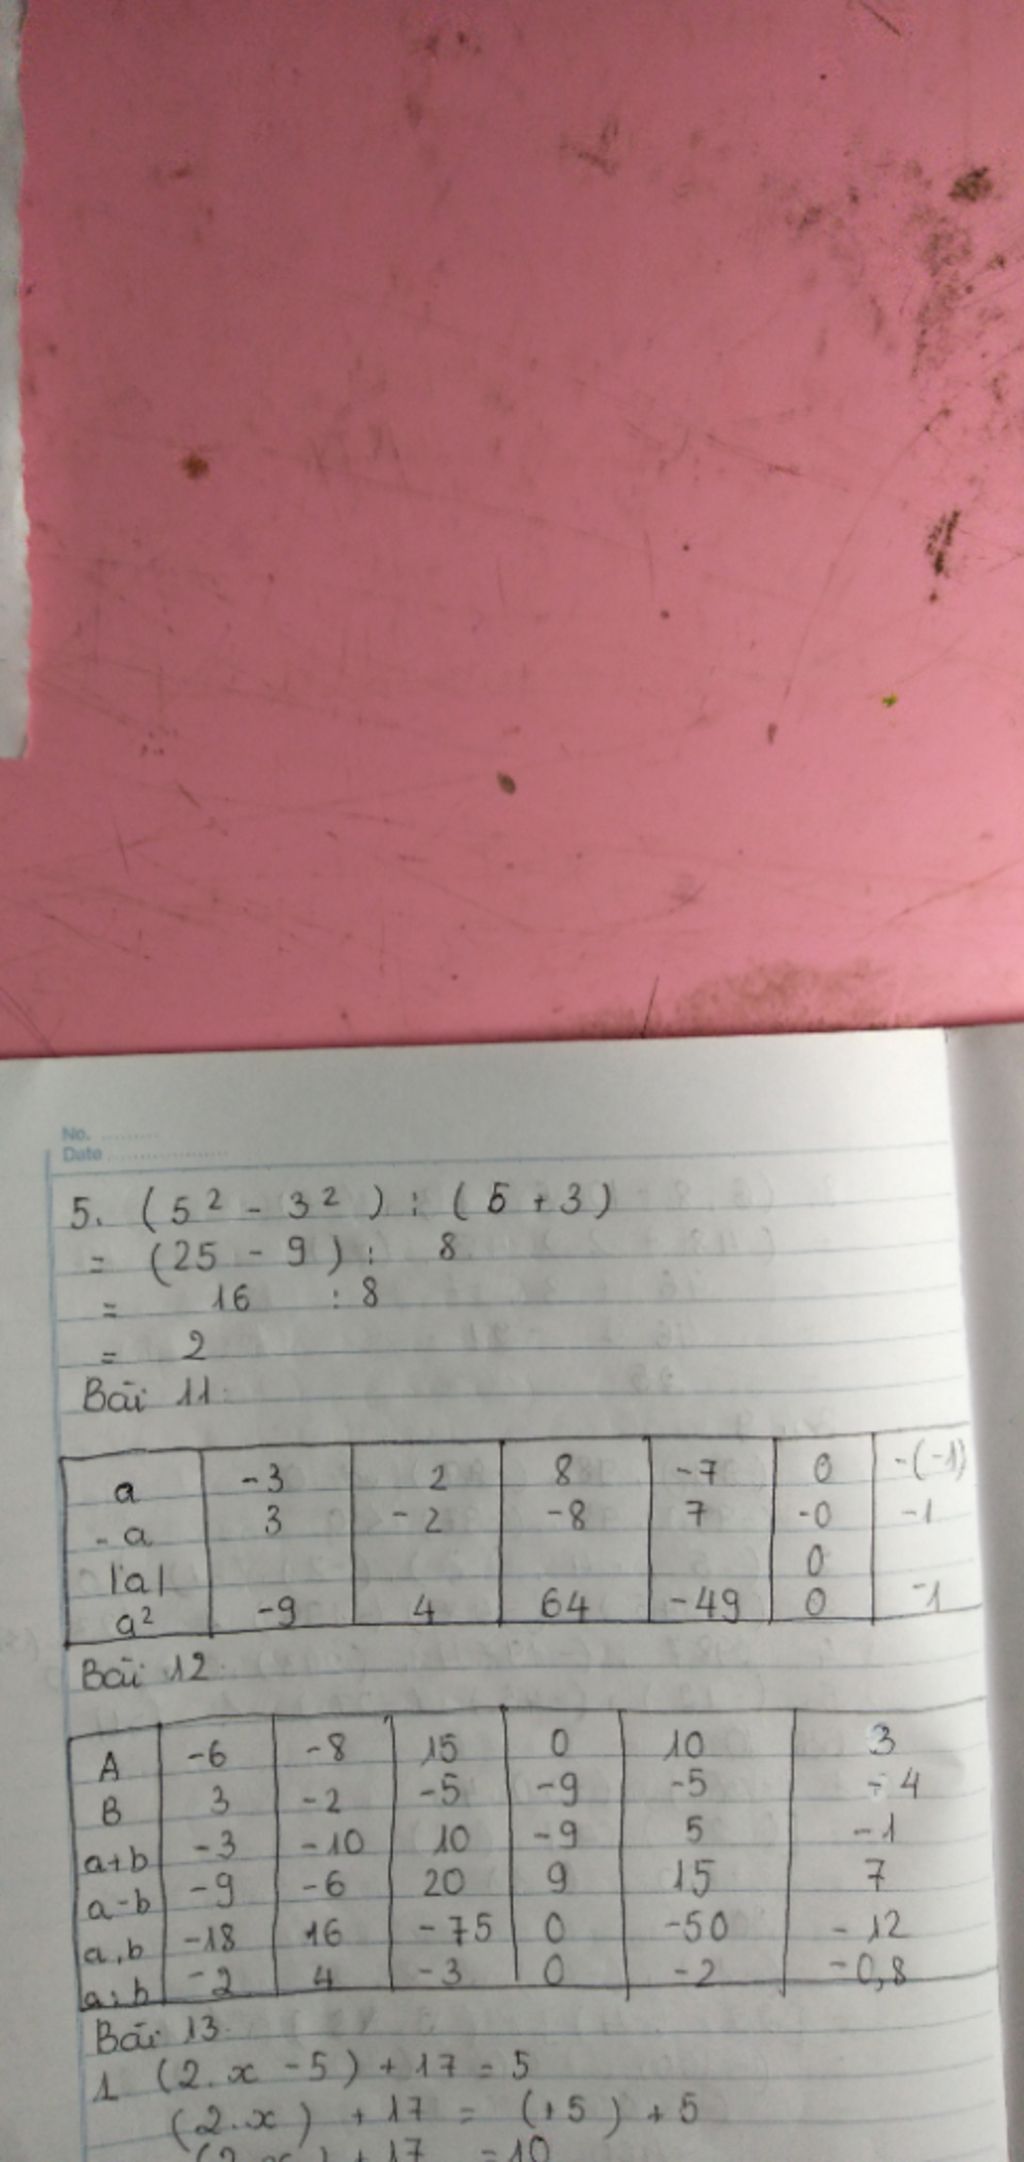 No. ..........
Date ....................
5. (5² - 3²) : (5 + 3)
= (25 - 9) : 8
= 16 : 8
= 2
Bài 11:
a -3 2 8 -7 0 -(-1)
- a 3 -2 -8 7 -0 -1
|a| 0
a² -9 4 64 -49 0 -1
Bài 12:
A -6 -8 15 0 10 3
B 3 -2 -5 -9 -5 -4
a+b -3 -10 10 -9 5 -1
a-b -9 -6 20 9 15 7
a.b -18 16 -75 0 -50 -12
a:b -2 4 -3 0 -2 -0,8
Bài 13:
1 (2.x - 5) + 17 = 5
(2.x) + 17 = (+5) + 5
(2.x) + 17 = 10